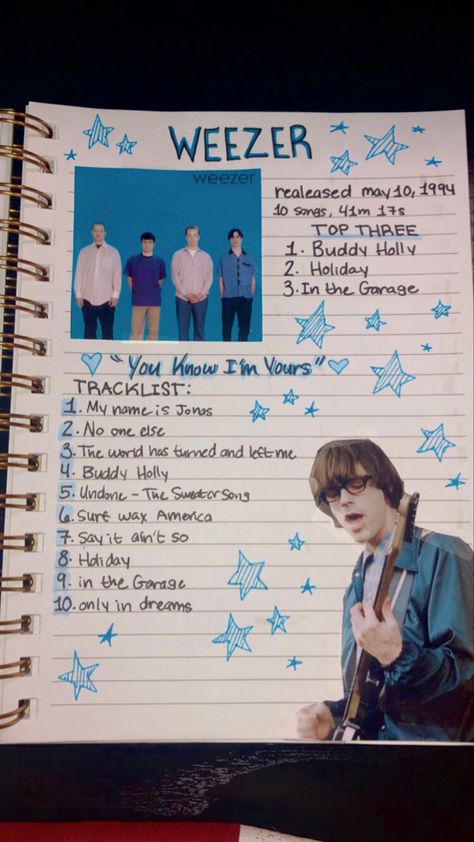 WEEZER
weezer
realeased may 10, 1994
10 songs, 41m 17s
TOP THREE
1. Buddy Holly
2. Holiday
3. In the Garage
"You Know I'm Yours"
TRACKLIST:
1. My name is Jonas
2. No one else
3. The world has turned and left me
4. Buddy Holly
5. Undone - The Sweater Song
6. Surf wax America
7. Say it ain't so
8. Holiday
9. in the Garage
10. only in dreams